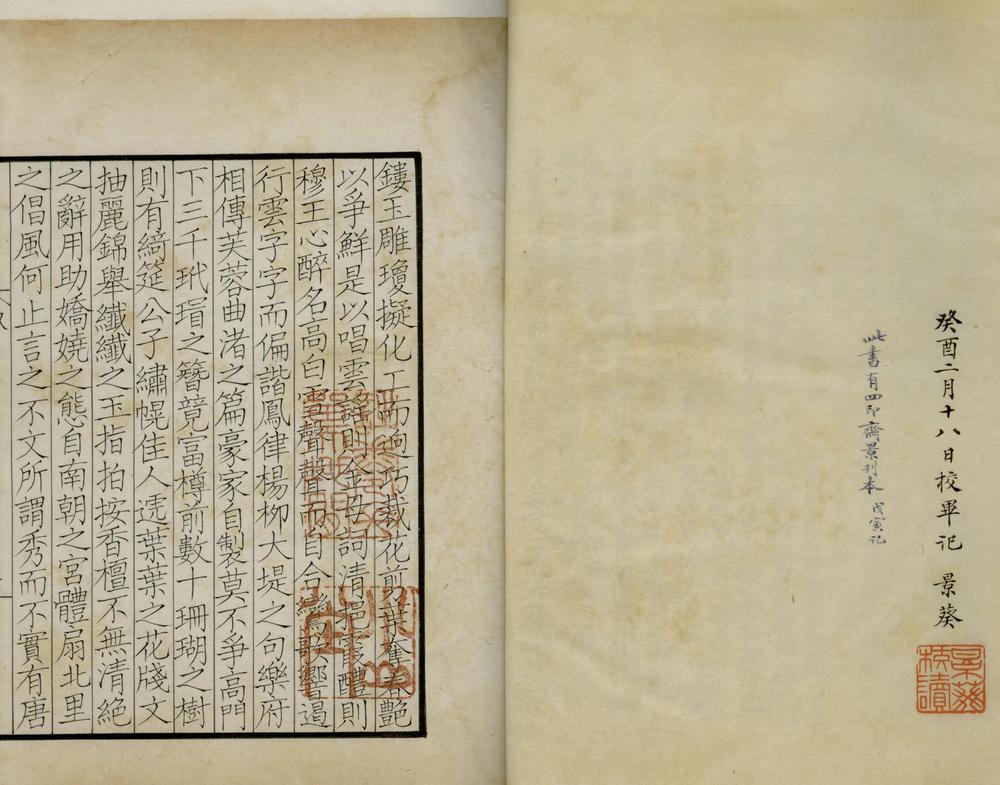 癸酉二月十八日校畢記 景葵
此書有四印齋景刊本 戊寅記
景葵校讀
鏤玉雕瓊擬化工而逈巧裁花剪葉奪春艷
以爭鮮是以唱雲謠則金母詞清挹霞醴則
穆王心醉名高白雪聲聲而自合鸞歌響遏
行雲字字而偏諧鳳律楊柳大堤之句樂府
相傳芙蓉曲渚之篇豪家自製莫不爭高門
下三千玳瑁之簪競富樽前數十珊瑚之樹
則有綺筵公子繡幌佳人遞葉葉之花牋文
抽麗錦舉纖纖之玉指拍按香檀不無清絕
之辭用助嬌嬈之態自南朝之宮體扇北里
之倡風何止言之不文所謂秀而不實有唐